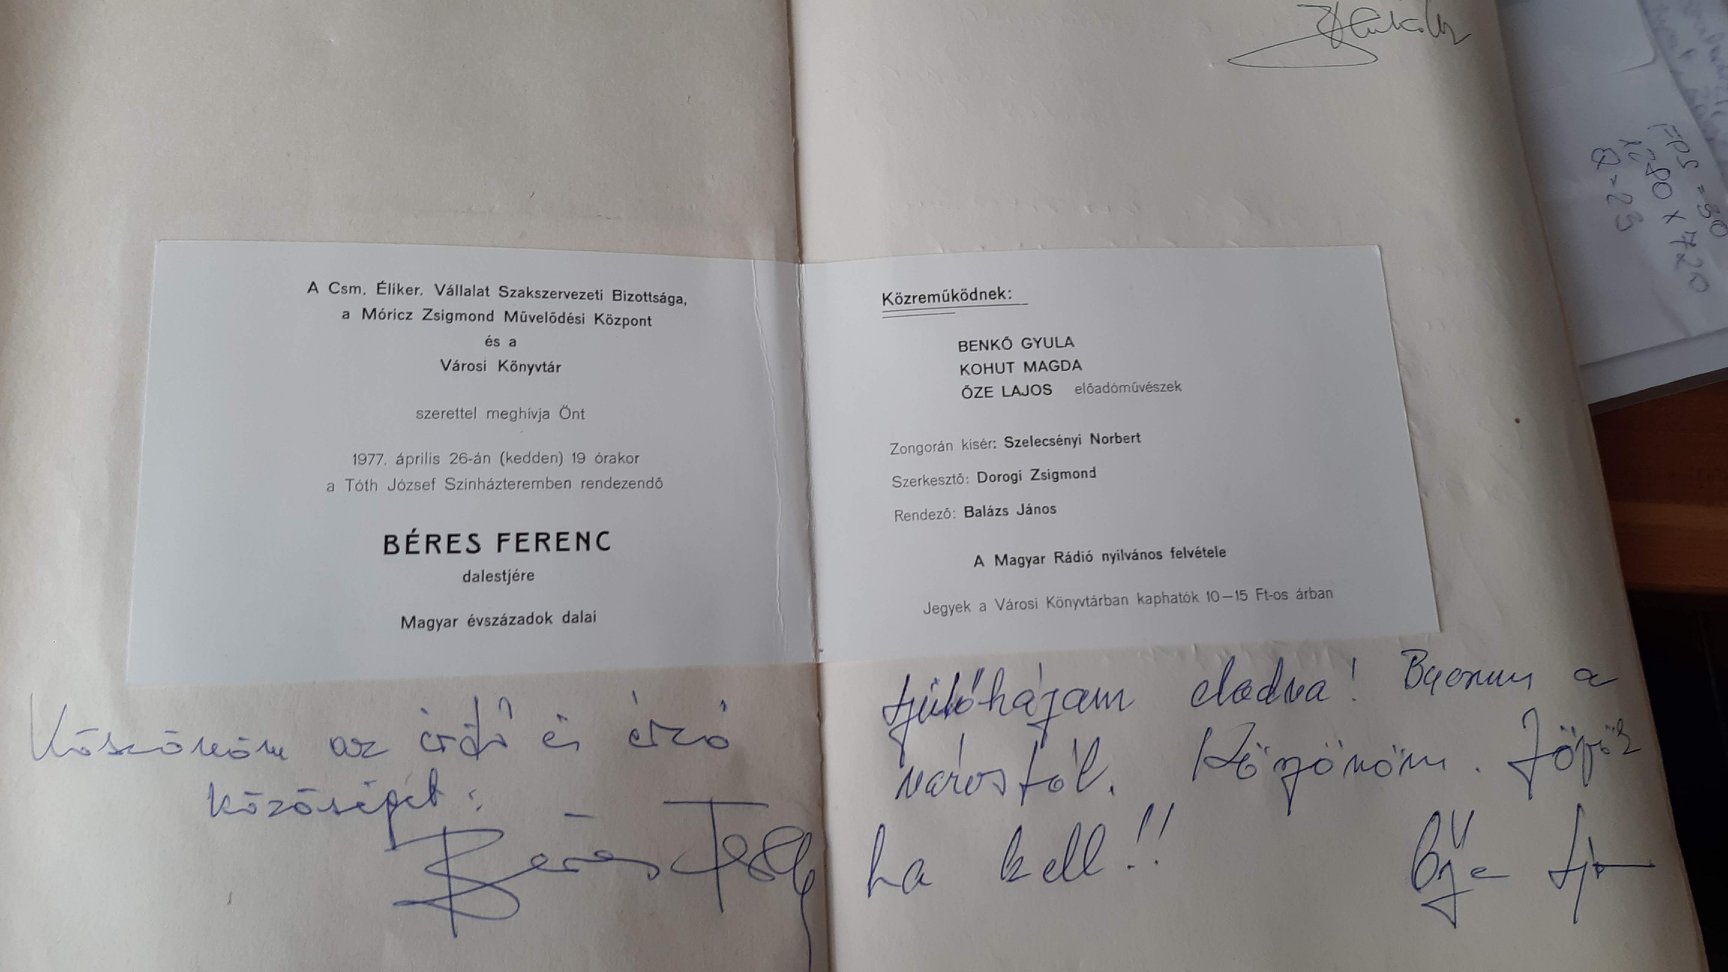 A Csm. Éliker. Vállalat Szakszervezeti Bizottsága,
a Móricz Zsigmond Művelődési Központ
és a
Városi Könyvtár
szerettel meghívja Önt
1977. április 26-án (kedden) 19 órakor
a Tóth József Színházteremben rendezendő
BÉRES FERENC
dalestjére
Magyar évszázadok dalai
Köszönöm az értő és érző
közönségét:
Béres
Közreműködnek:
BENKŐ GYULA
KOHUT MAGDA
ŐZE LAJOS előadóművészek
Zongorán kisér: Szelecsényi Norbert
Szerkesztő: Dorogi Zsigmond
Rendező: Balázs János
A Magyar Rádió nyilvános felvétele
Jegyek a Városi Könyvtárban kaphatók 10—15 Ft-os árban
Szülőházam eladva! Búcsúzom a
várostól. Köszönöm. Jövök
ha kell!!
Őze
FPS = 30
1280 x 720
Q = 23